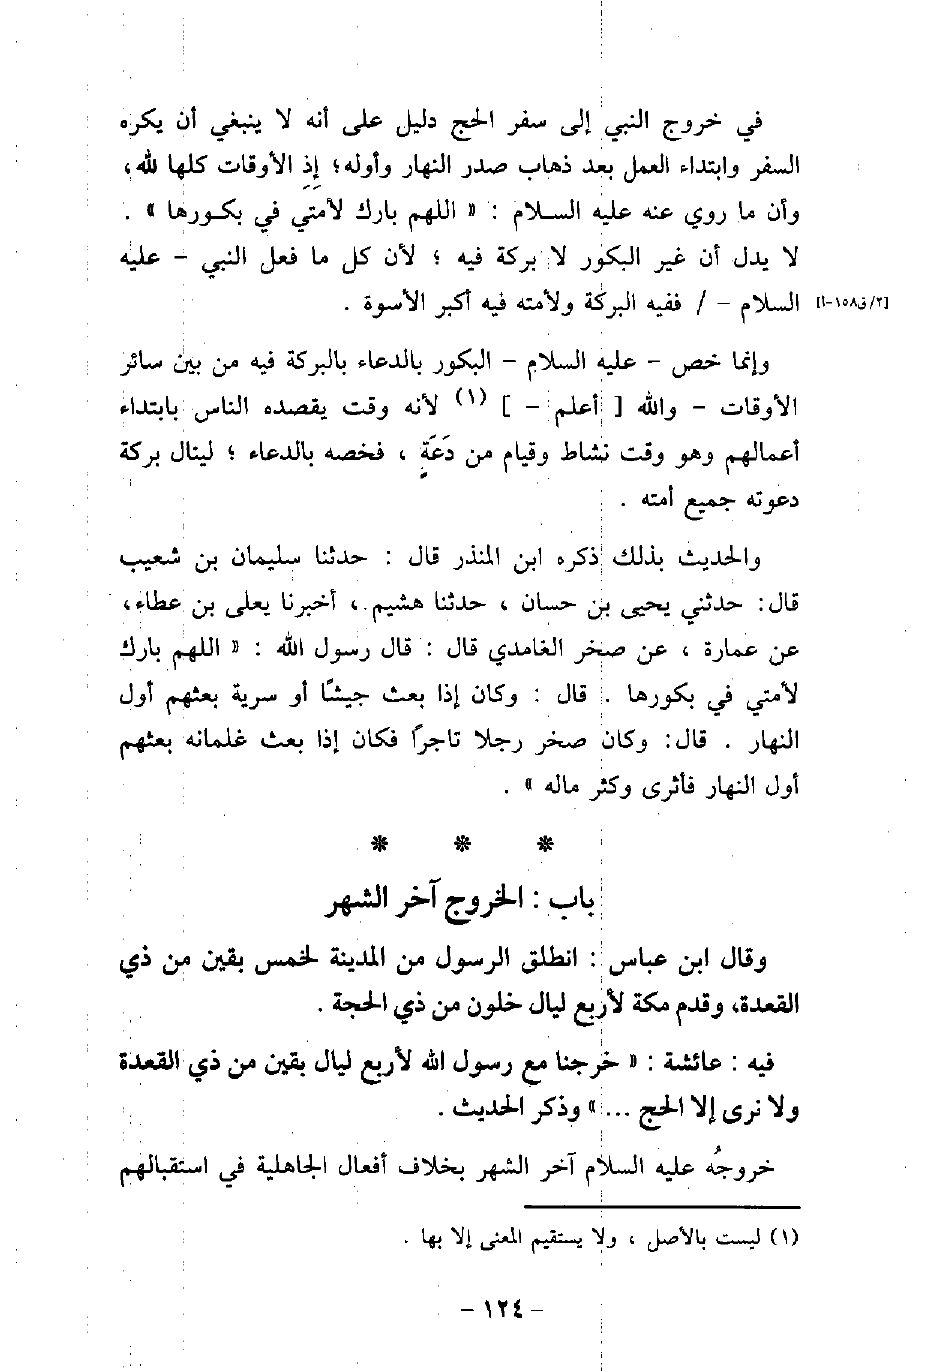 في خروج النبي إلى سفر الحج دليل على أنه لا ينبغي أن يكره
السفر وابتداء العمل بعد ذهاب صدر النهار وأوله؛ إذ الأوقات كلها لله،
وأن ما روي عنه عليه السلام : « اللهم بارك لأمتي في بكورها » .
لا يدل أن غير البكور لا بركة فيه ؛ لأن كل ما فعل النبي - عليه
[٢/ق١٥٨-أ] السلام - / ففيه البركة ولأمته فيه أكبر الأسوة .
وإنما خص - عليه السلام - البكور بالدعاء بالبركة فيه من بين سائر
الأوقات - والله [ أعلم - ] (١) لأنه وقت يقصده الناس بابتداء
أعمالهم وهو وقت نشاط وقيام من دَعَةٍ ، فخصه بالدعاء ؛ لينال بركة
دعوته جميع أمته .
والحديث بذلك ذكره ابن المنذر قال : حدثنا سليمان بن شعيب
قال: حدثني يحيى بن حسان ، حدثنا هشيم ، أخبرنا يعلى بن عطاء،
عن عمارة ، عن صخر الغامدي قال : قال رسول الله : « اللهم بارك
لأمتي في بكورها . قال : وكان إذا بعث جيشًا أو سرية بعثهم أول
النهار . قال: وكان صخر رجلا تاجرًا فكان إذا بعث غلمانه بعثهم
أول النهار فأثرى وكثر ماله » .
* * *
باب : الخروج آخر الشهر
وقال ابن عباس : انطلق الرسول من المدينة لخمس بقين من ذي
القعدة، وقدم مكة لأربع ليال خلون من ذي الحجة .
فيه : عائشة : « خرجنا مع رسول الله لأربع ليال بقين من ذي القعدة
ولا نرى إلا الحج ... » وذكر الحديث .
خروجُه عليه السلام آخر الشهر بخلاف أفعال الجاهلية في استقبالهم
(١) ليست بالأصل ، ولا يستقيم المعنى إلا بها .
- ١٢٤ -